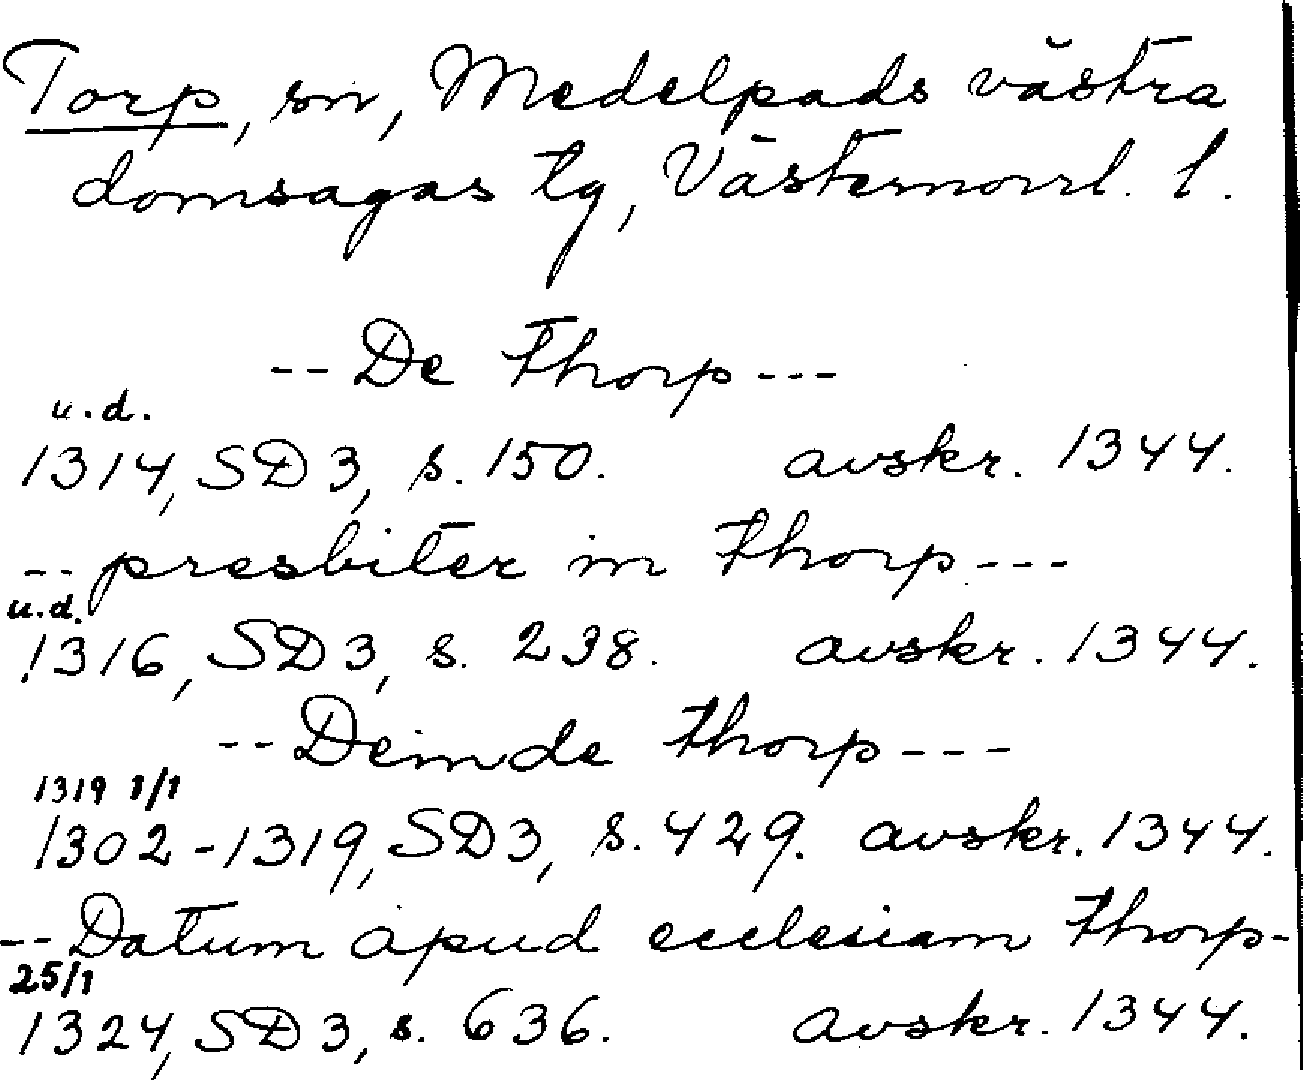 Torp, sn, Medelpads västra
domsagas tg, Västernorrl. l.
-- De thorp ---
u. d.
1314, SD 3, s. 150. avskr. 1344.
-- presbiter in thorp ---
u. d.
1316, SD 3, s. 238. avskr. 1344.
-- Deinde thorp ---
1319 1/1
1302-1319, SD 3, s. 429. avskr. 1344.
-- Datum apud ecclesiam thorp-
25/1
1324, SD 3, s. 636. avskr. 1344.